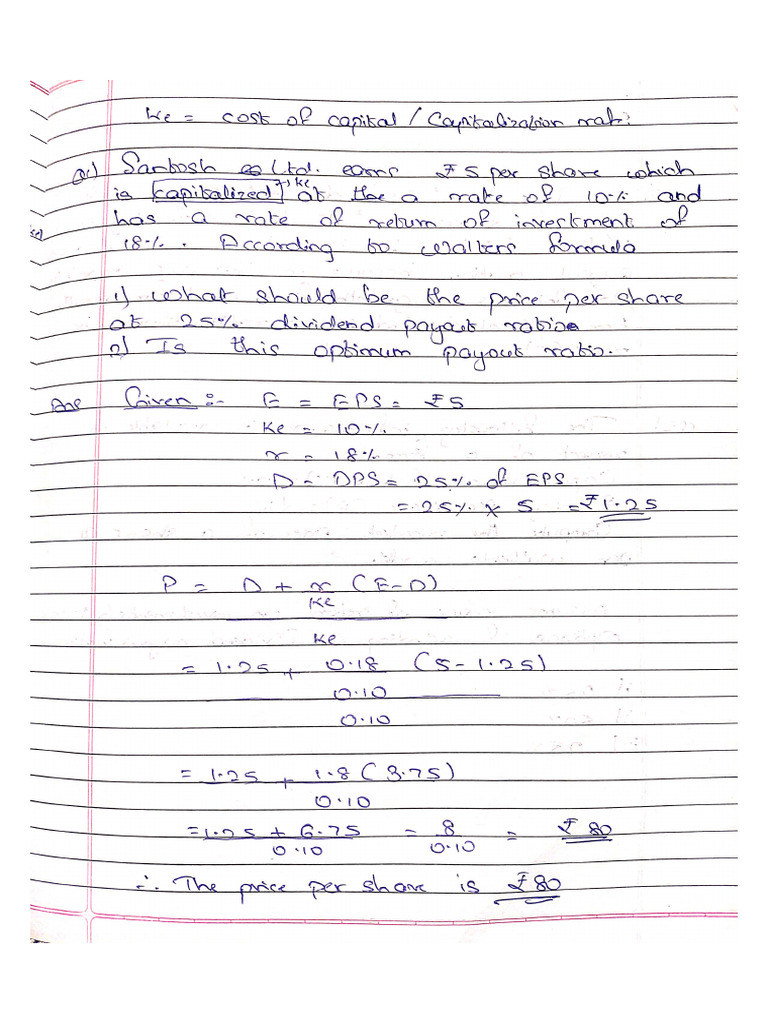 Ke = cost of capital / Capitalization rate.
Q.1) Santosh Ltd. earns ₹5 per share which
→ Ke
is capitalized at the a rate of 10% and
has a rate of return of investment of
18%. According to walters formula
1) What should be the price per share
at 25% dividend payout ratio
2) Is this optimum payout ratio.
Ans Given :- E = EPS = ₹5
Ke = 10%
r = 18%
D = DPS = 25% of EPS
= 25% × 5 = ₹1.25
P = D + r (E-D)
Ke
Ke
= 1.25 + 0.18 (5 - 1.25)
0.10
0.10
= 1.25 + 1.8 (3.75)
0.10
= 1.25 + 6.75 = 8 = ₹80
0.10 0.10
∴ The price per share is ₹80